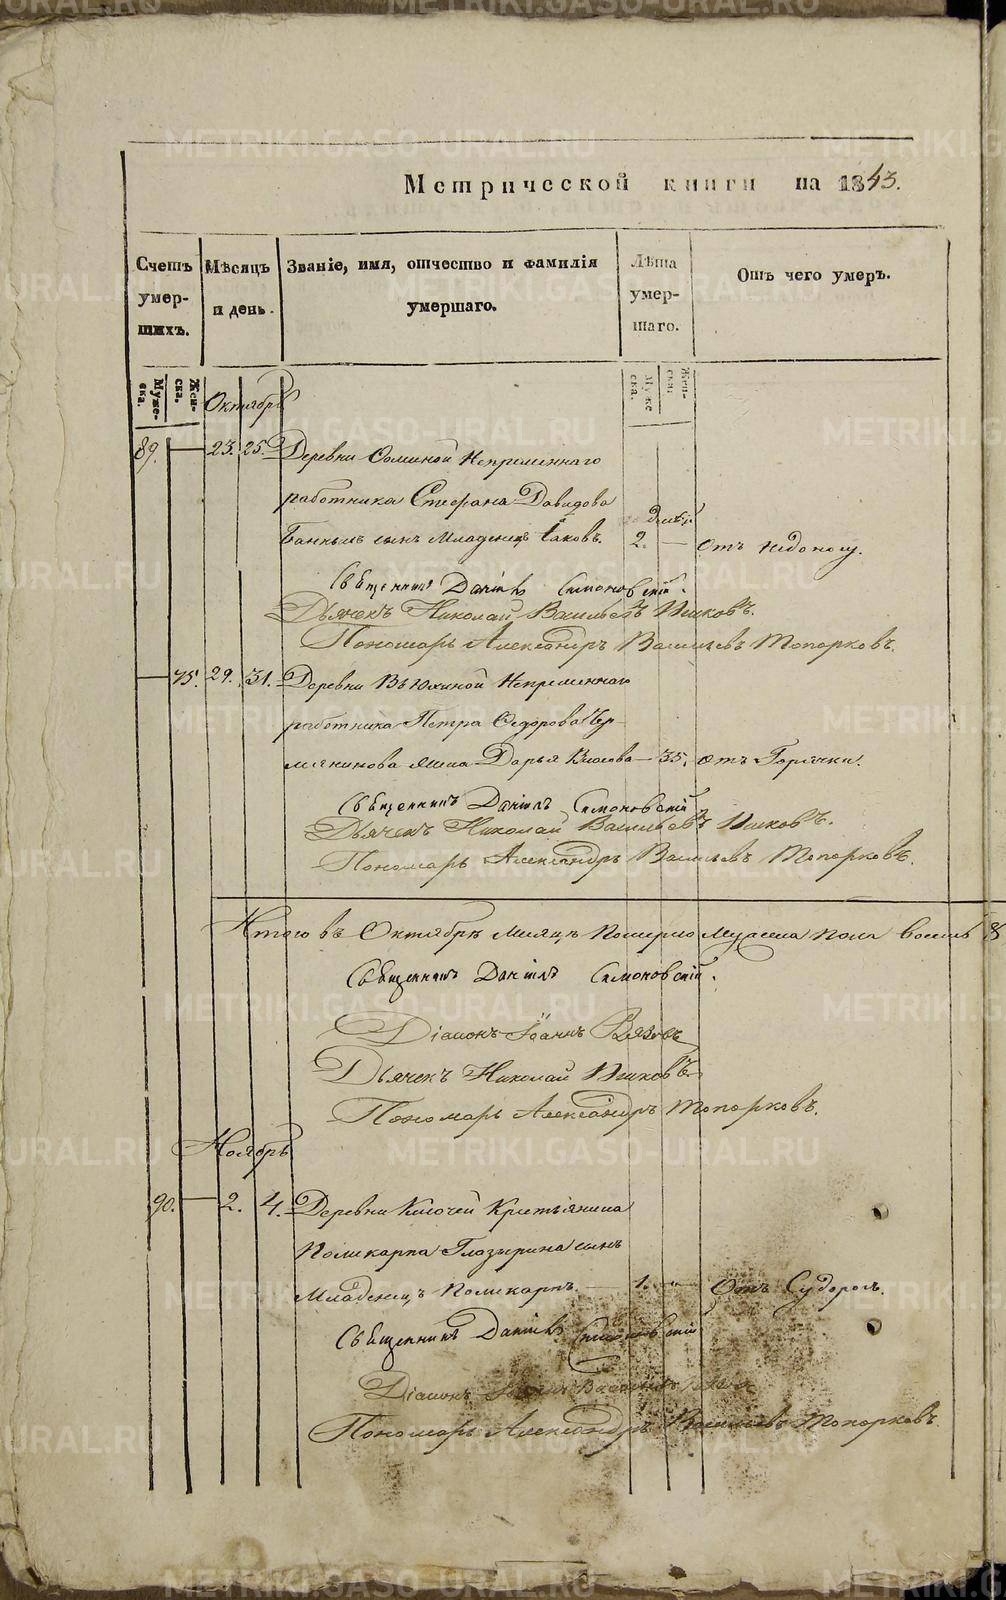 Метрической книги на 1843.
Счетъ умер- шихъ.
Мѣсяцъ и день.
Званіе, имя, отчество и фамилія умершаго.
Лѣта умер- шаго.
Отъ чего умеръ.
Муже- ска.
Жен- ска.
Муже ска.
Жен- ска.
Октябрь
89. 23. 25. Деревни Соминой Непременнаго
работника Стефана Давидова
сынъ Младенецъ Іаковъ. 2. дней — Отъ недоносу.
Священникъ Даніилъ Симоновскій.
Дьячекъ Николай Васильевъ Пшковъ.
Пономарь Александръ Васильевъ Топорковъ.
75. 29. 31. Деревни Непременнаго
работника Петра Федорова Чер-
жена Дарья Власова — 35. отъ Горячки.
Священникъ Даніилъ Симоновскій
Дьячекъ Николай Васильевъ
Пономарь Александръ Васильевъ Топорковъ.
Итого въ Октябрѣ месяцѣ Померло Мужеска пола восемь 8
Священникъ Даніилъ Симоновскій.
Діаконъ Іоаннъ
Дьячекъ Николай
Пономарь Александръ Топорковъ.
Ноябрь
90. — 2. 4. Деревни Ключей Крестьянина
Поликарпа Глазырина сынъ
Младенецъ Поликарпъ. — 1. " Отъ Судорогъ.
Священникъ Даніилъ Симоновскій
Діаконъ
Пономарь Александръ Васильевъ Топорковъ.
METRIKI.GASO-URAL.RU